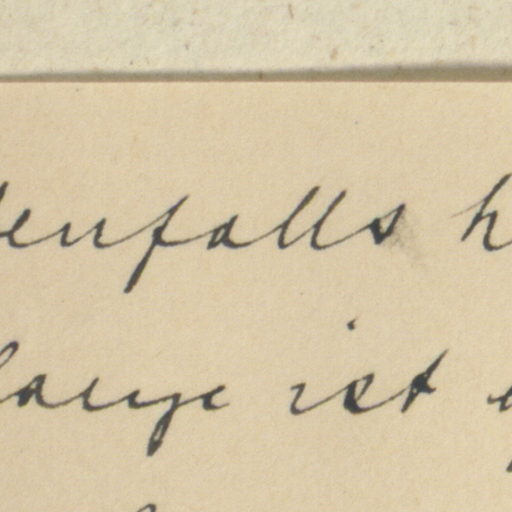 denfalls h
lange ist